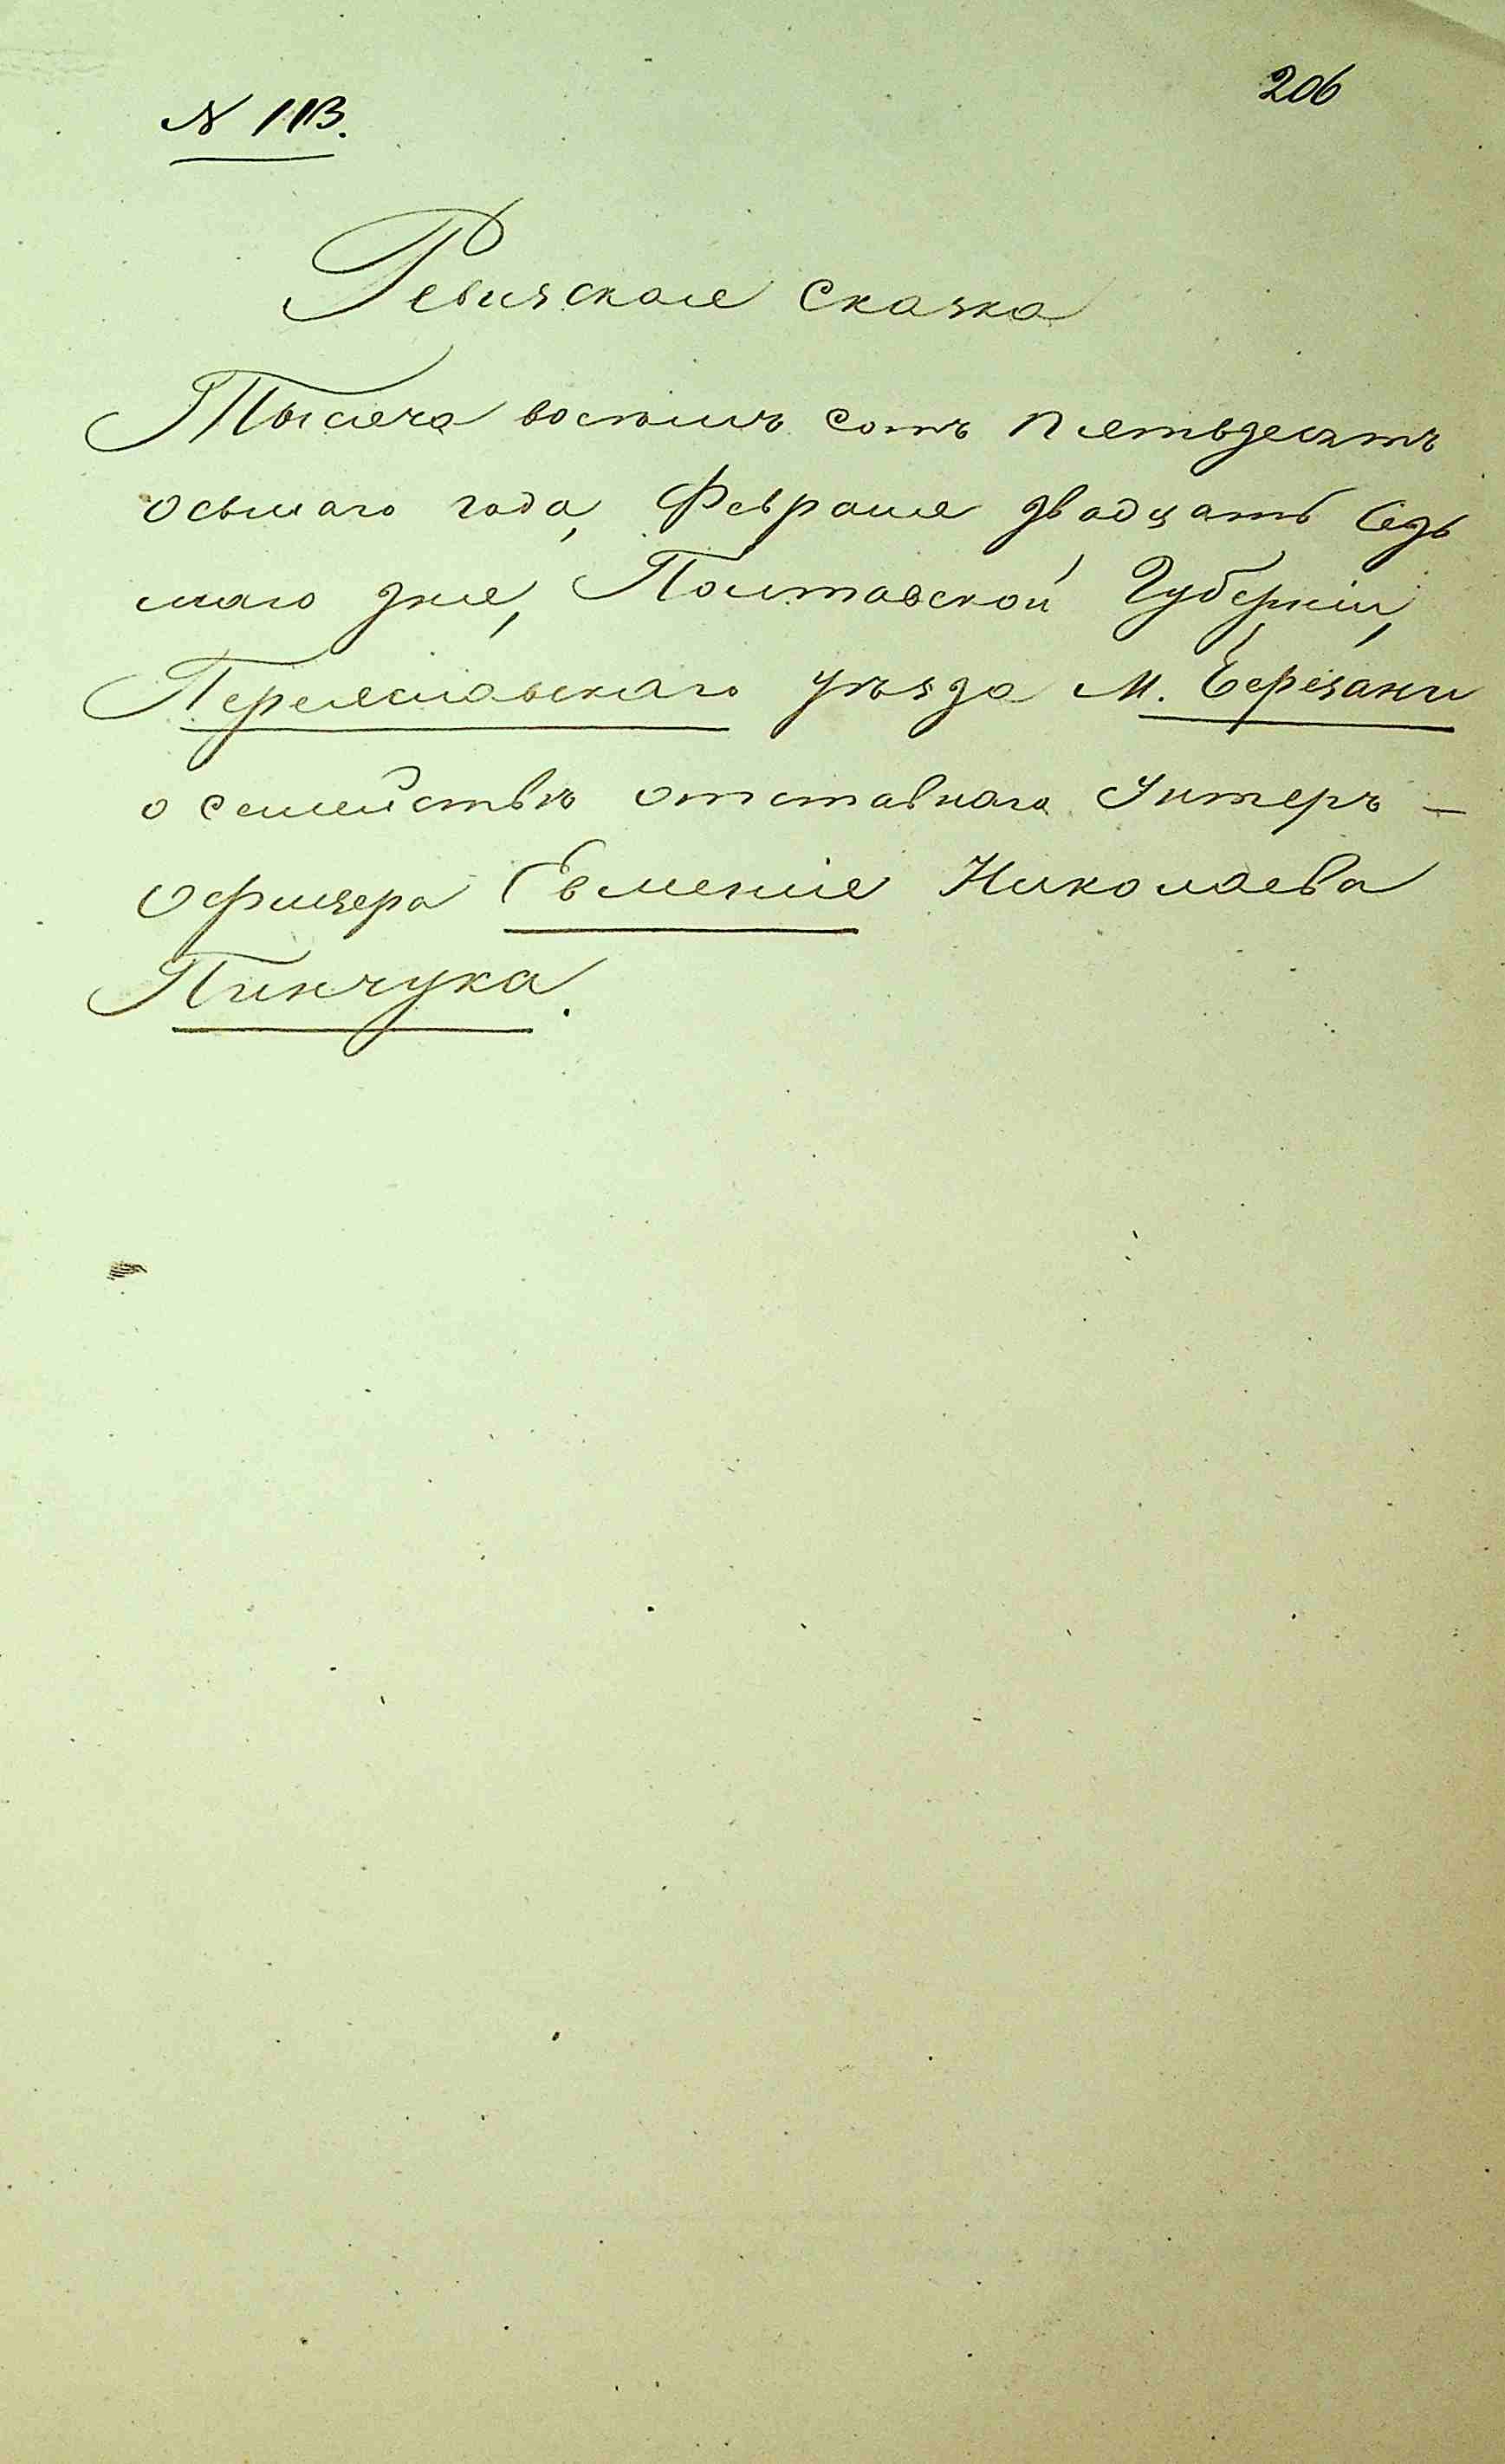 206
№ 113.
Ревизская сказка
Тысяча восемь сотъ пятьдесятъ
осьмаго года, Февраля двадцать седь
маго дня, Полтавской Губерніи,
Переяславскаго уѣзда м. Березани
о семействѣ отставнаго Унтеръ –
офицера Евменія Николаева
Пинчука.